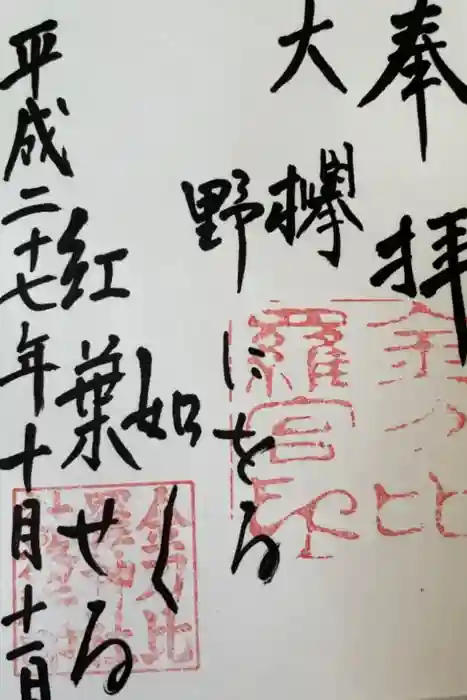 奉拝
大欅
野にをる
如く
紅葉せる
平成二十七年十月十一日
金刀比
羅宮印
金刀比